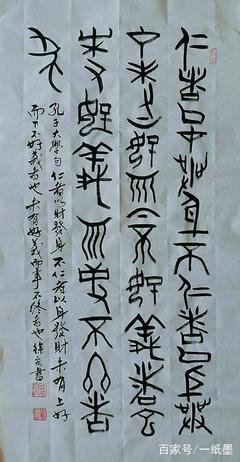 仁者以財發身不仁者以身發
財未有上好而下不好義者也
未有好義而事不終者
也
孔子大學句 仁者以財發身 不仁者以身發財 未有上好
而下不好義者也 未有好義而事不終者也 徐書
百家号/一纸墨